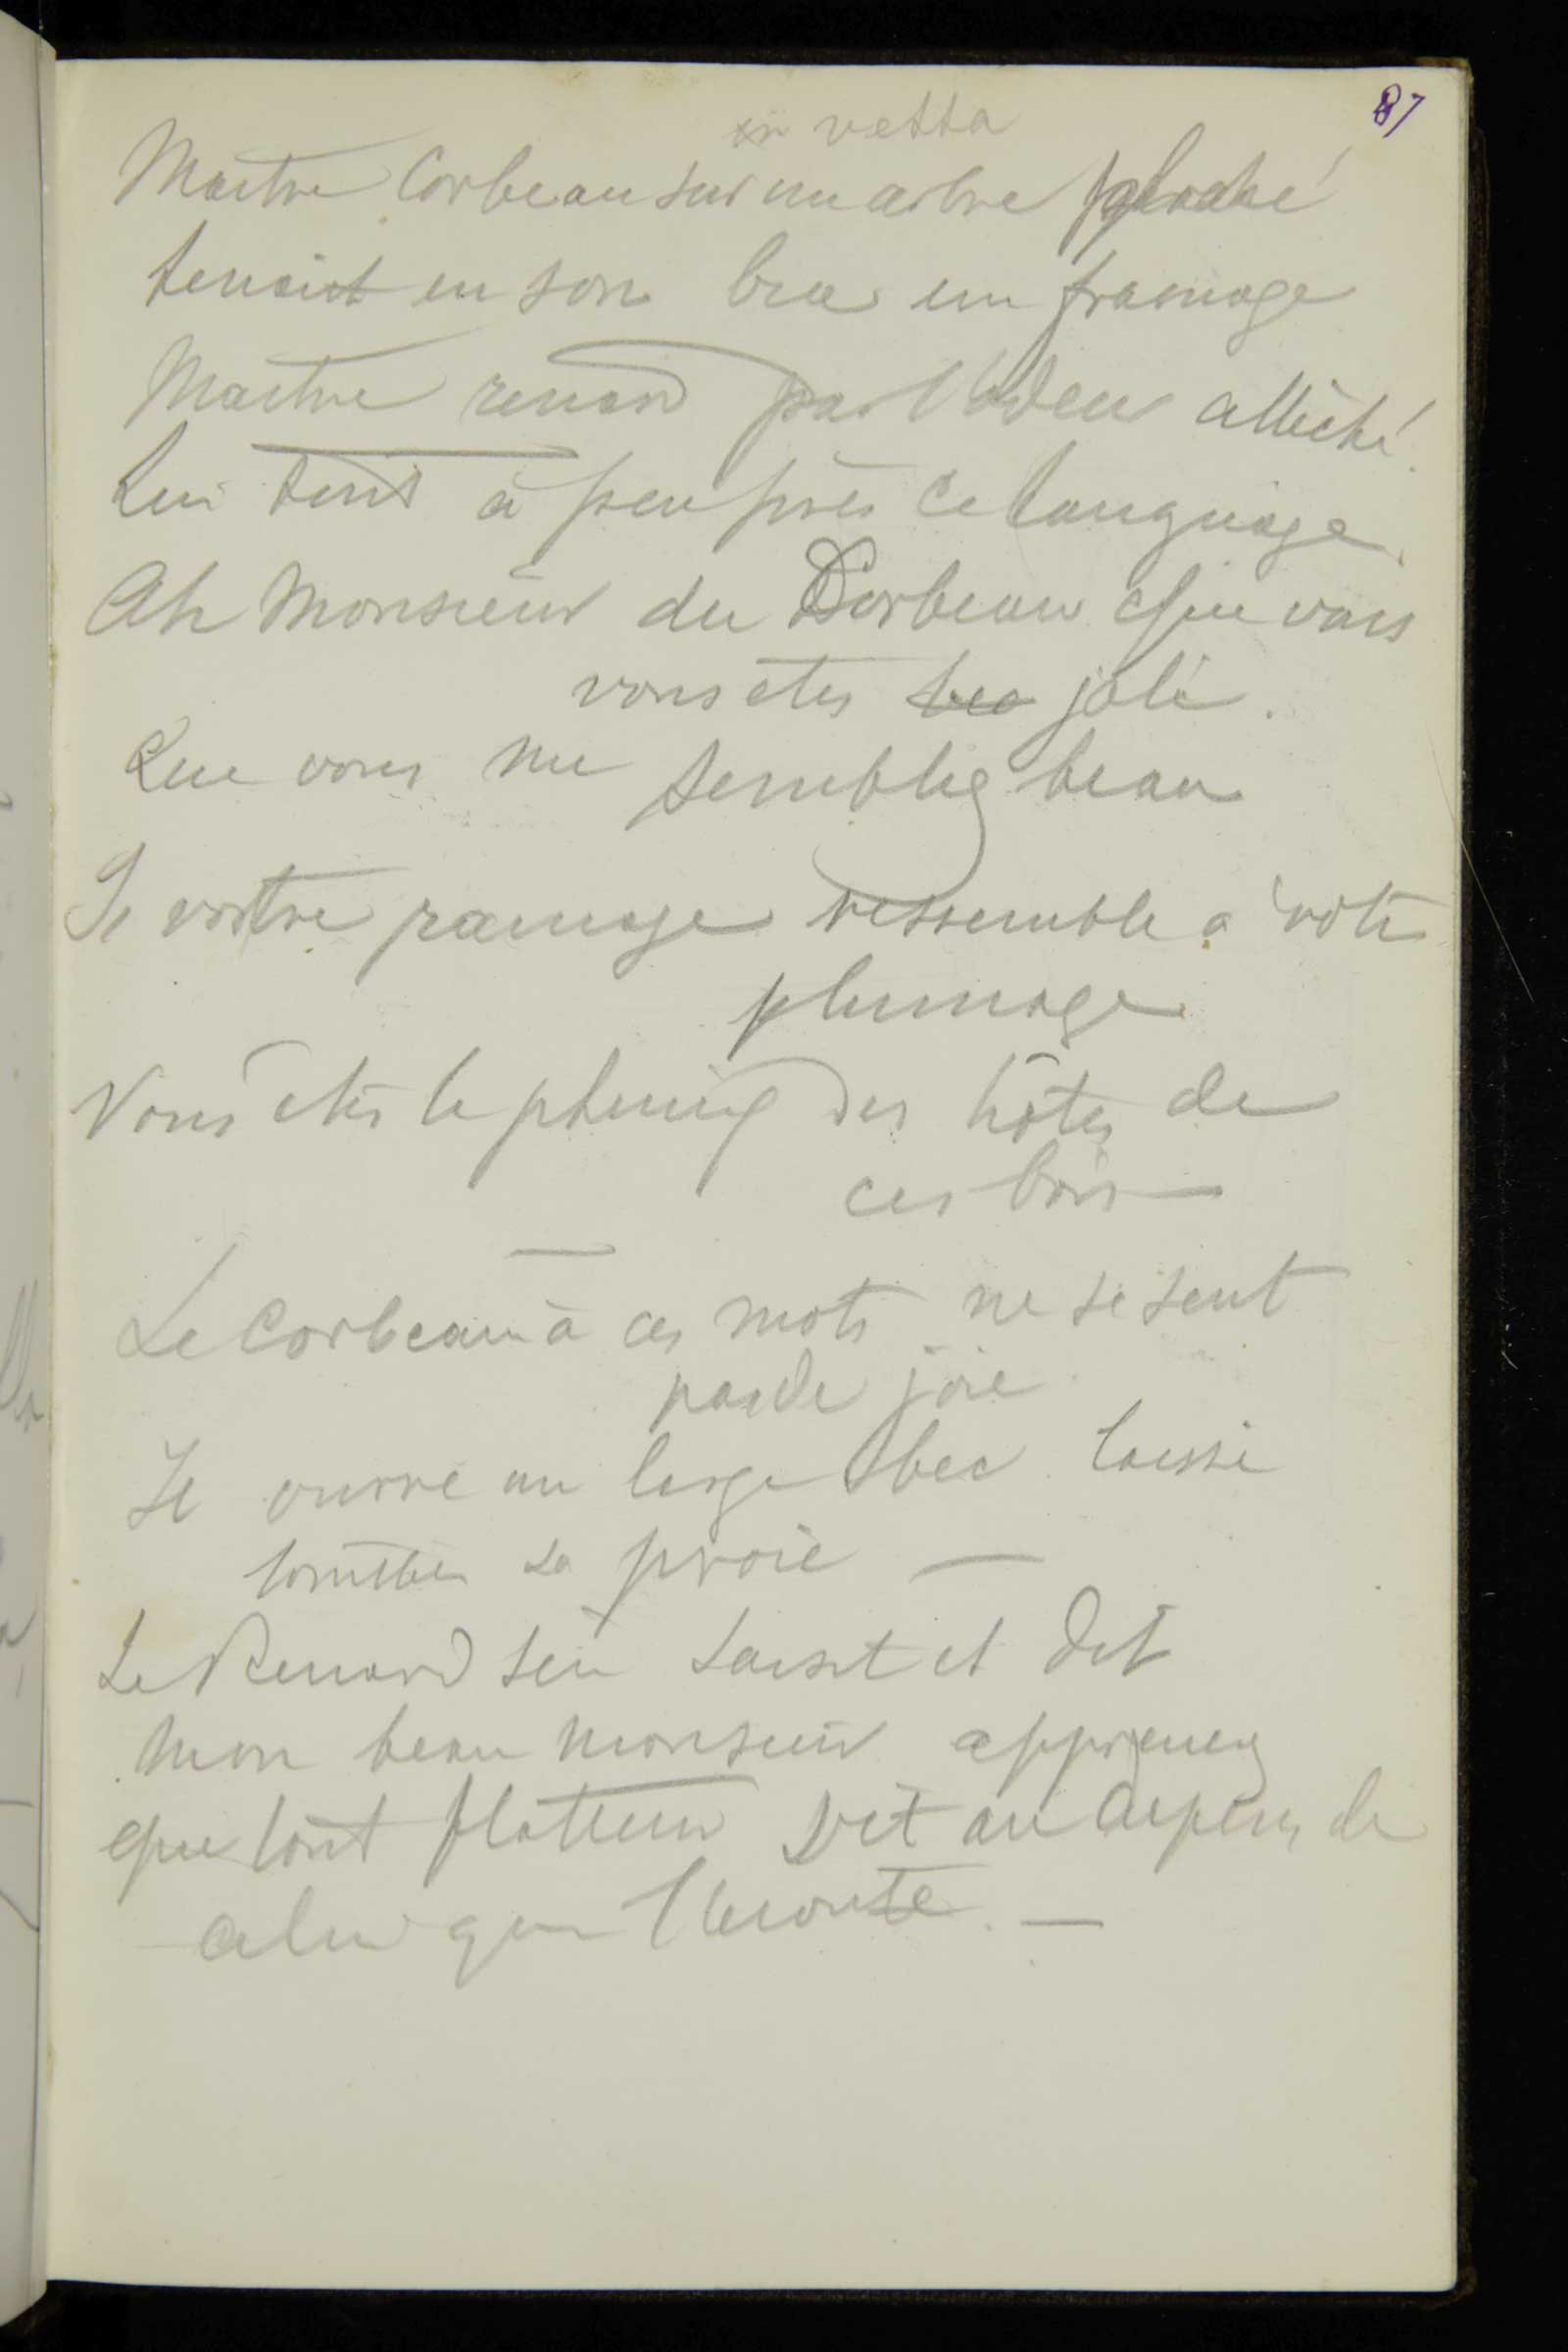 87
in vetta
Maitre Corbeau sur un arbre perché
tenait en son bec un framage
Maitre renard par l'odeur alléché
Lui tint à peu près ce language
Ah Monsieur du Corbeau que vous
vous etes bea joli.
Que vous me semblez beau
Si vostre ramage ressemble a votre
plumage
Vous etes le phenix des hôtes de
ces bois —
Le Corbeau à ces mots ne se sent
pas de joie
Il ouvre un large bec laisse
tomber sa proie —
Le Renard s'en saisit et dit
mon beau monsieur apprenez
que tout flatteur vit au depens de
celui qui l'ecoute. —